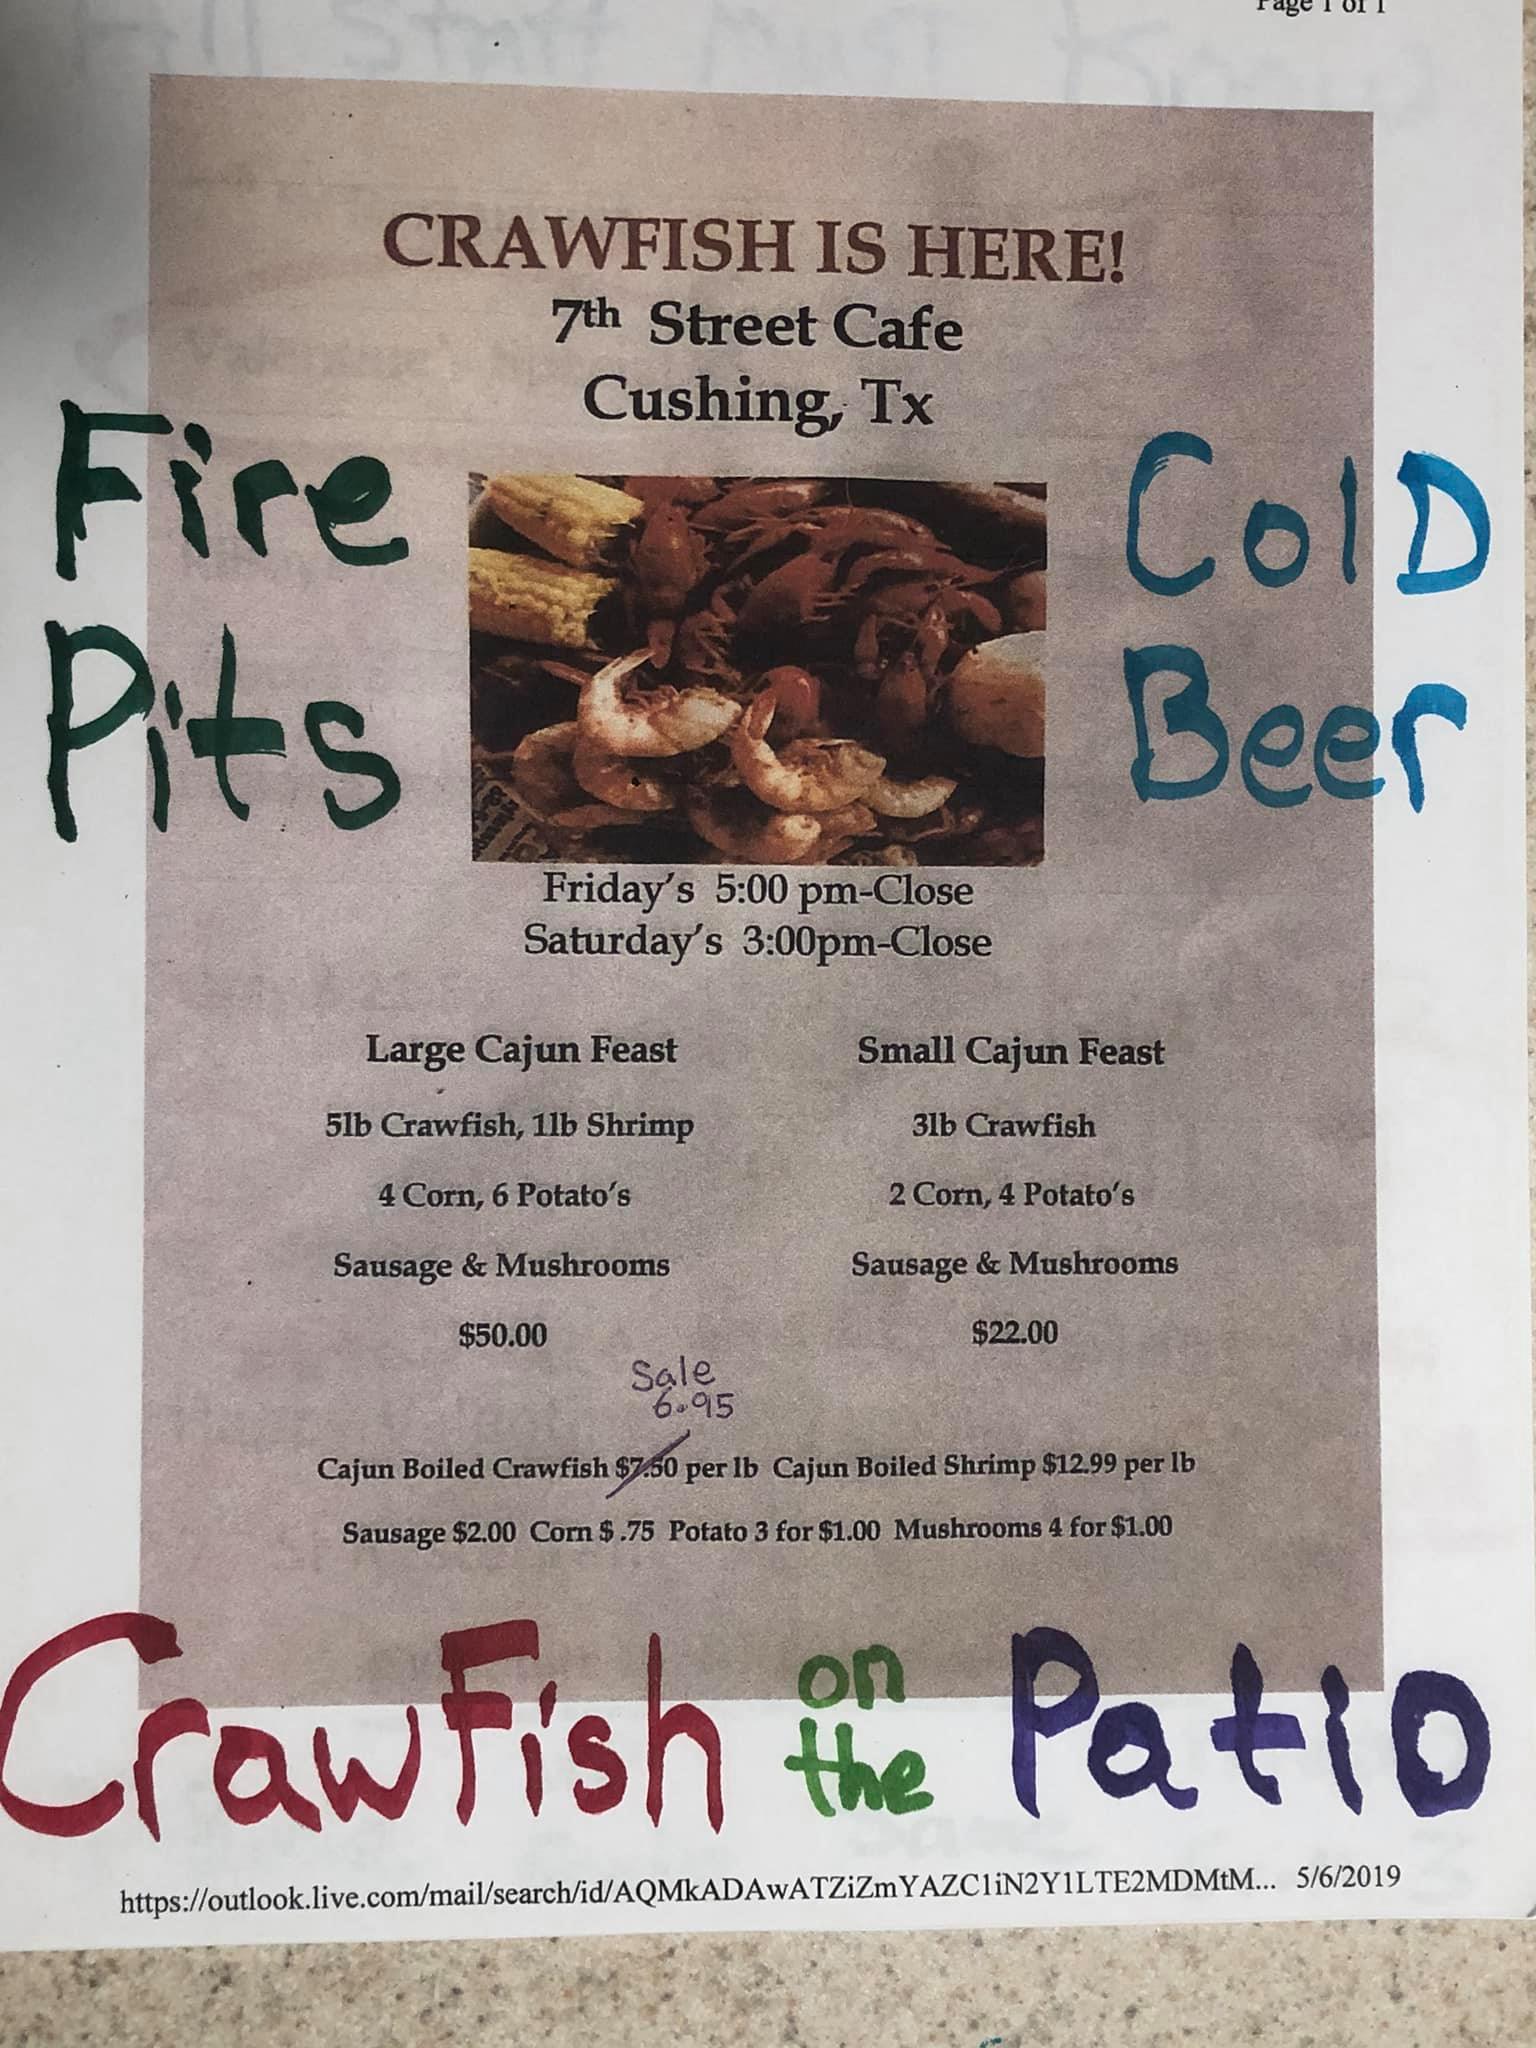 Page 1 of 1
CRAWFISH IS HERE!
7th Street Cafe
Cushing, Tx
Fire
Pits
Cold
Beer
Friday's 5:00 pm-Close
Saturday's 3:00pm-Close
Large Cajun Feast
5lb Crawfish, 1lb Shrimp
4 Corn, 6 Potato's
Sausage & Mushrooms
$50.00
Small Cajun Feast
3lb Crawfish
2 Corn, 4 Potato's
Sausage & Mushrooms
$22.00
Sale
6.95
Cajun Boiled Crawfish $7.50 per lb Cajun Boiled Shrimp $12.99 per lb
Sausage $2.00 Corn $ .75 Potato 3 for $1.00 Mushrooms 4 for $1.00
CrawFish on the Patio
https://outlook.live.com/mail/search/id/AQMkADAwATZiZmYAZC1iN2Y1LTE2MDMtM... 5/6/2019